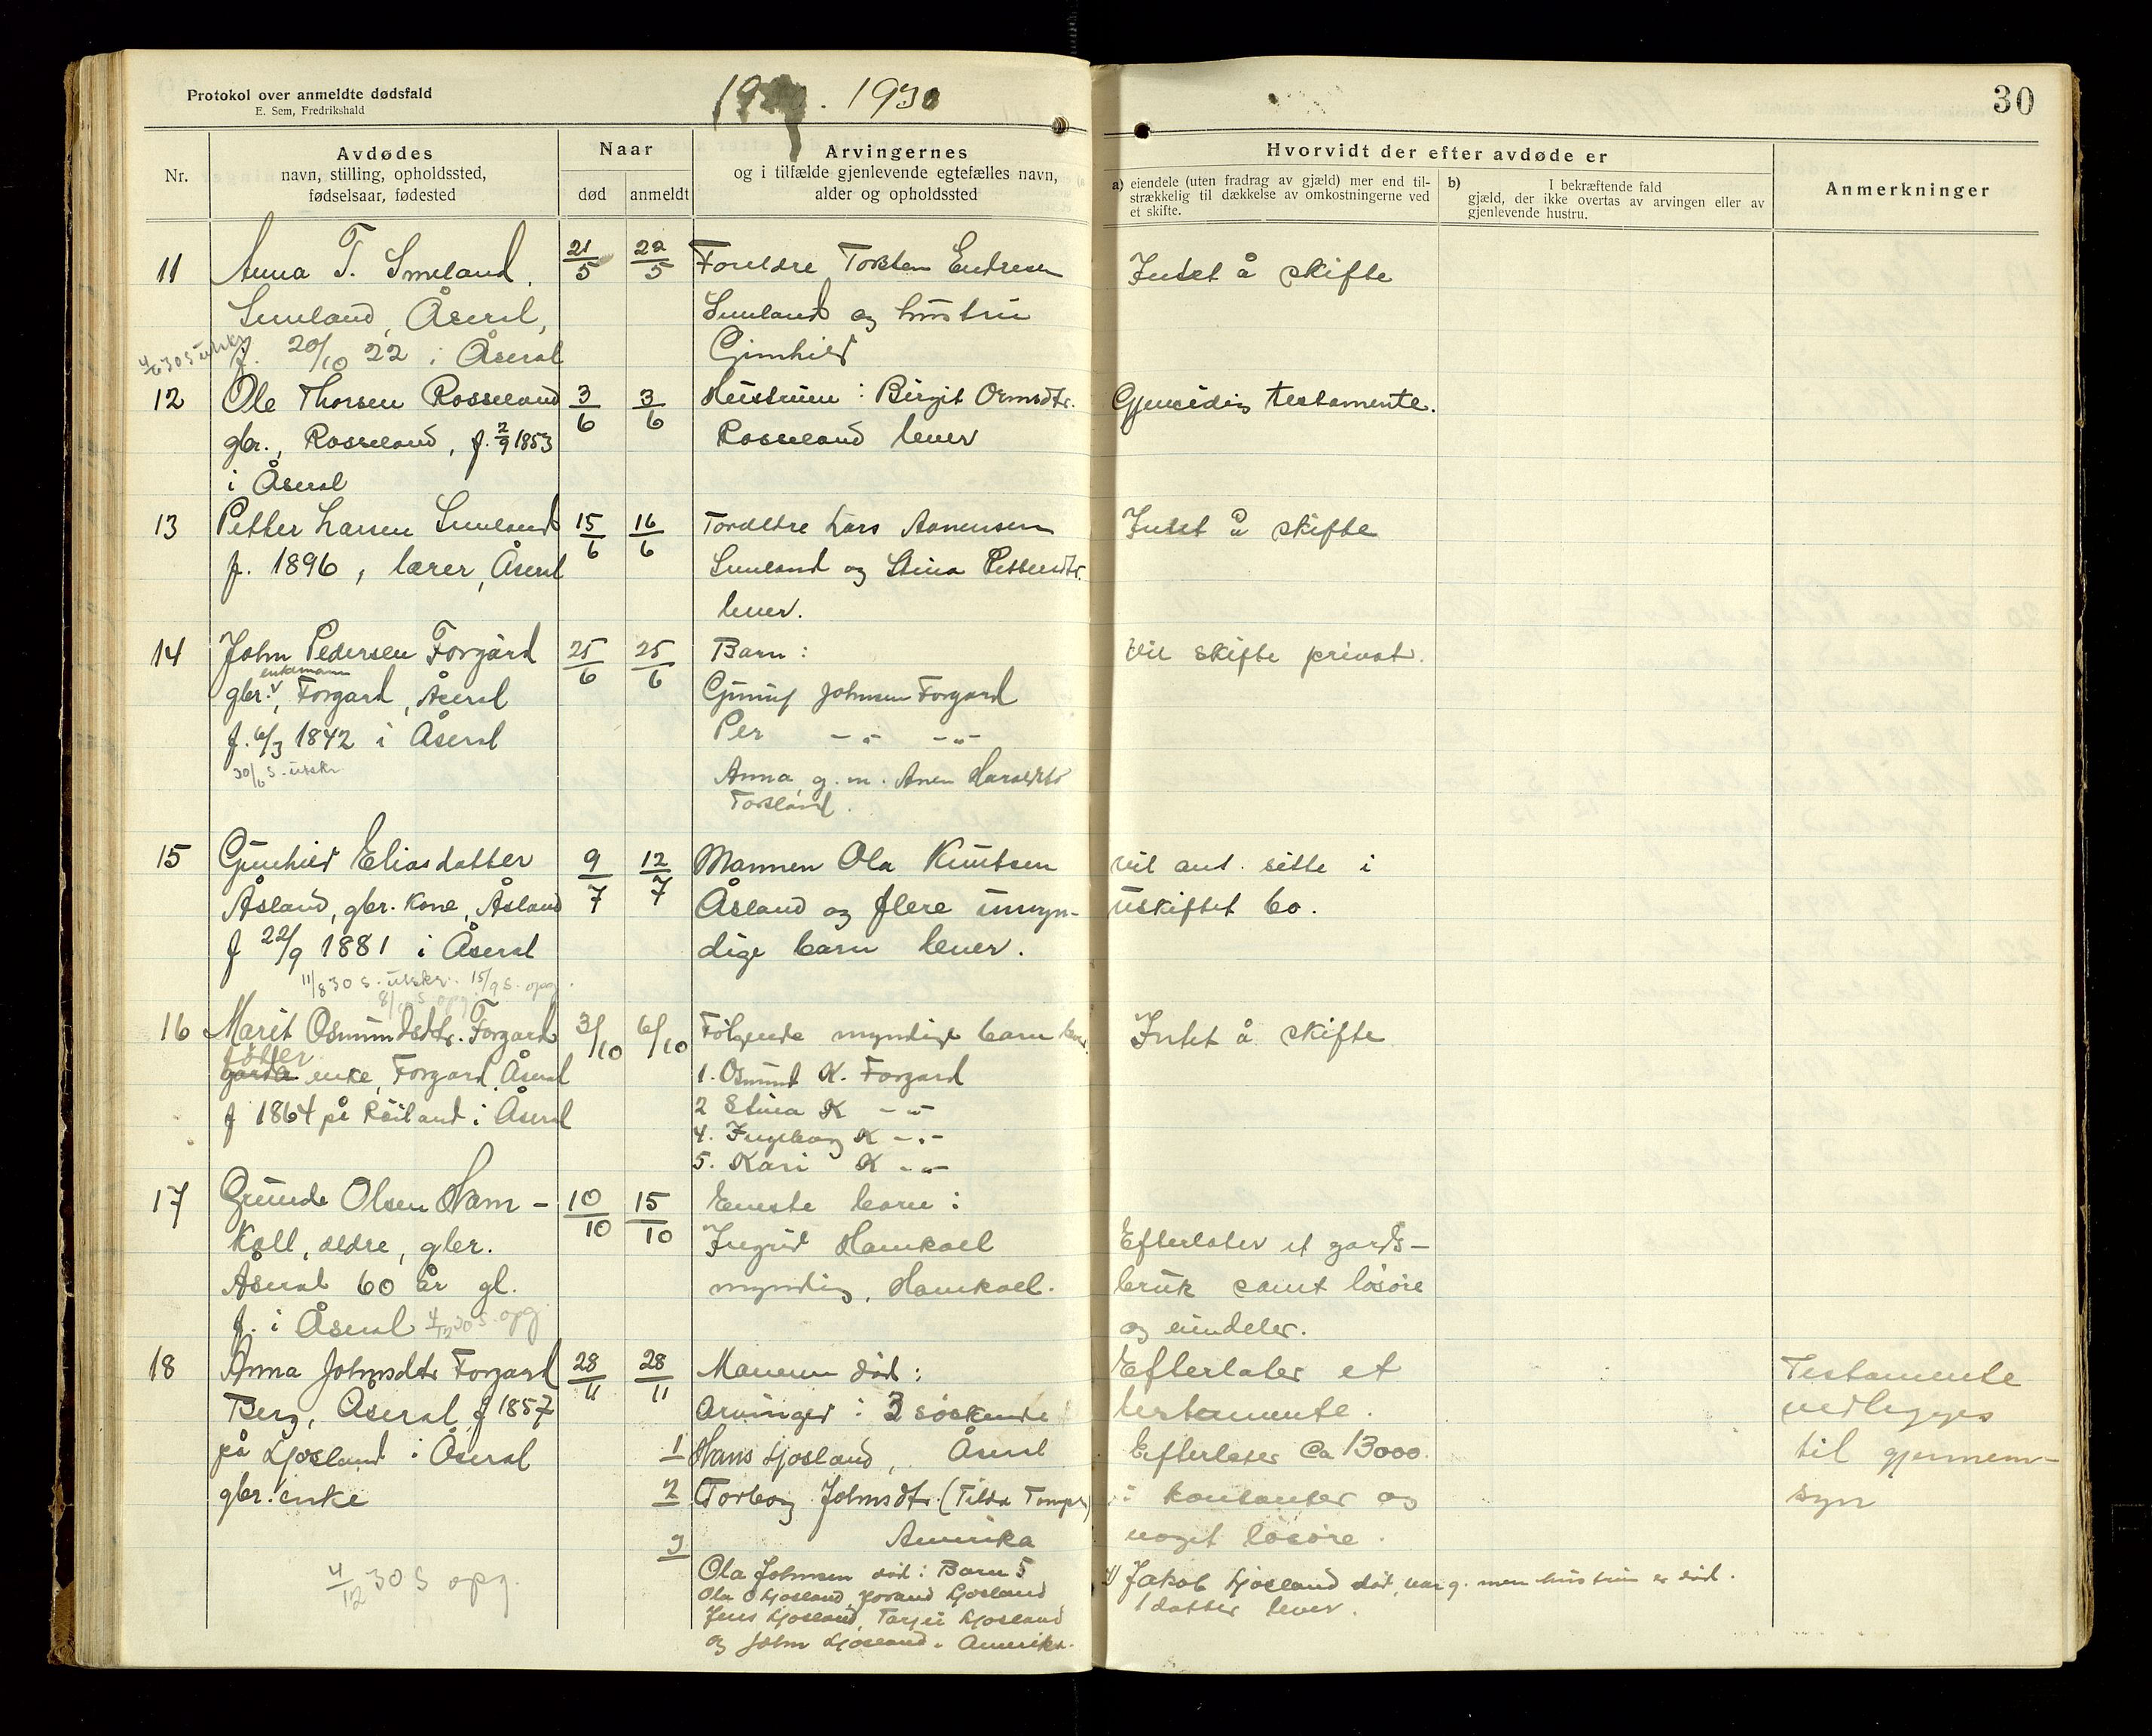 Protokol over anmeldte dødsfald
E. Sem, Fredrikshald
1930
30
Nr.
Avdødes
navn, stilling, opholdssted,
fødselsaar, fødested
Naar
død
anmeldt
Arvingernes
og i tilfælde gjenlevende egtefælles navn,
alder og opholdssted
Hvorvidt der efter avdøde er
a) eiendele (uten fradrag av gjæld) mer end til-
strækkelig til dækkelse av omkostningerne ved
et skifte.
b) I bekræftende fald
gjæld, der ikke overtas av arvingen eller av
gjenlevende hustru.
Anmerkninger
11 Anna T. Smeland, 21/5 22/5 Foreldre Torsten Endresen Intet å skifte
Smeland, Åseral, Smeland og hustru
f. 20/10 22 i Åseral Gunhild
4/6 30 S utskr
12 Ole Thorsen Rosseland 3/6 3/6 Hustruen: Birgit Ormsdtr. Gjensidig testamente.
gbr., Rosseland, f. 2/9 1853 Rosseland lever
i Åseral
13 Petter Larsen Smeland 15/6 16/6 Foreldre Lars Aanensen Intet å skifte
f. 1896, lærer, Åseral Smeland og Stina Pettersdtr.
lever.
14 John Pedersen Forgård 25/6 25/6 Barn: Vil skifte privat.
enkemann
gbr., Forgard, Åseral Gunuf Johnsen Forgard
f. 6/3 1842 i Åseral Per -"- -"-
30/6 S. utskr Anna g. m. Anen Haraldstø
Torsland.
15 Gunhild Eliasdatter 9/7 12/7 Mannen Ola Knutsen vil ant. sitte i
Åsland, gbr. kone, Åsland Åsland og flere umyn- uskiftet bo.
f 22/9 1881 i Åseral dige barn lever.
11/8 30 S. utskr. 15/9 S. opg.
8/10 S. opg.
16 Marit Osmundsdtr. Forgard 3/10 6/10 Følgende myndige barn lever. Intet å skifte
enke, Forgard, Åseral 1. Osmund K. Forgard
f 1864 på Røiland i Åseral 2 Stina K -"-
4. Ingeborg K -"-
5. Kari K -"-
17 Gunde Olsen Ham- 10/10 15/10 Eneste barn:
koll, eldre, gbr. Ingrid Hamkoll Efterlater et gards-
Åseral 60 år gl. myndig, Hamkoll. bruk samt løsøre
f. i Åseral 4/12 30 S. opg og eiendeler.
18 Anna Johnsdtr Forgard 28/11 28/11 Mannen død: Efterlater et Testamente
Berg, Åseral, f 1857 Arvinger: 3 søskende testamente. vedlegges
på Ljosland i Åseral 1 Hans Ljosland, Åseral Efterlater ca 13000 til gjennem-
gbr. enke 2 Torborg Johnsdtr. (Tilda i kontanter og syn
Amerika noget løsøre.
3 Ola Johnsen død: Barn 5 Jakob Ljosland død, var g. men hustruen er død.
Ola O Ljosland, Jorand Ljosland 1 datter lever.
Jens Ljosland, Tarjei Ljosland
og John Ljosland i Amerika.
4/12 30 S opg.